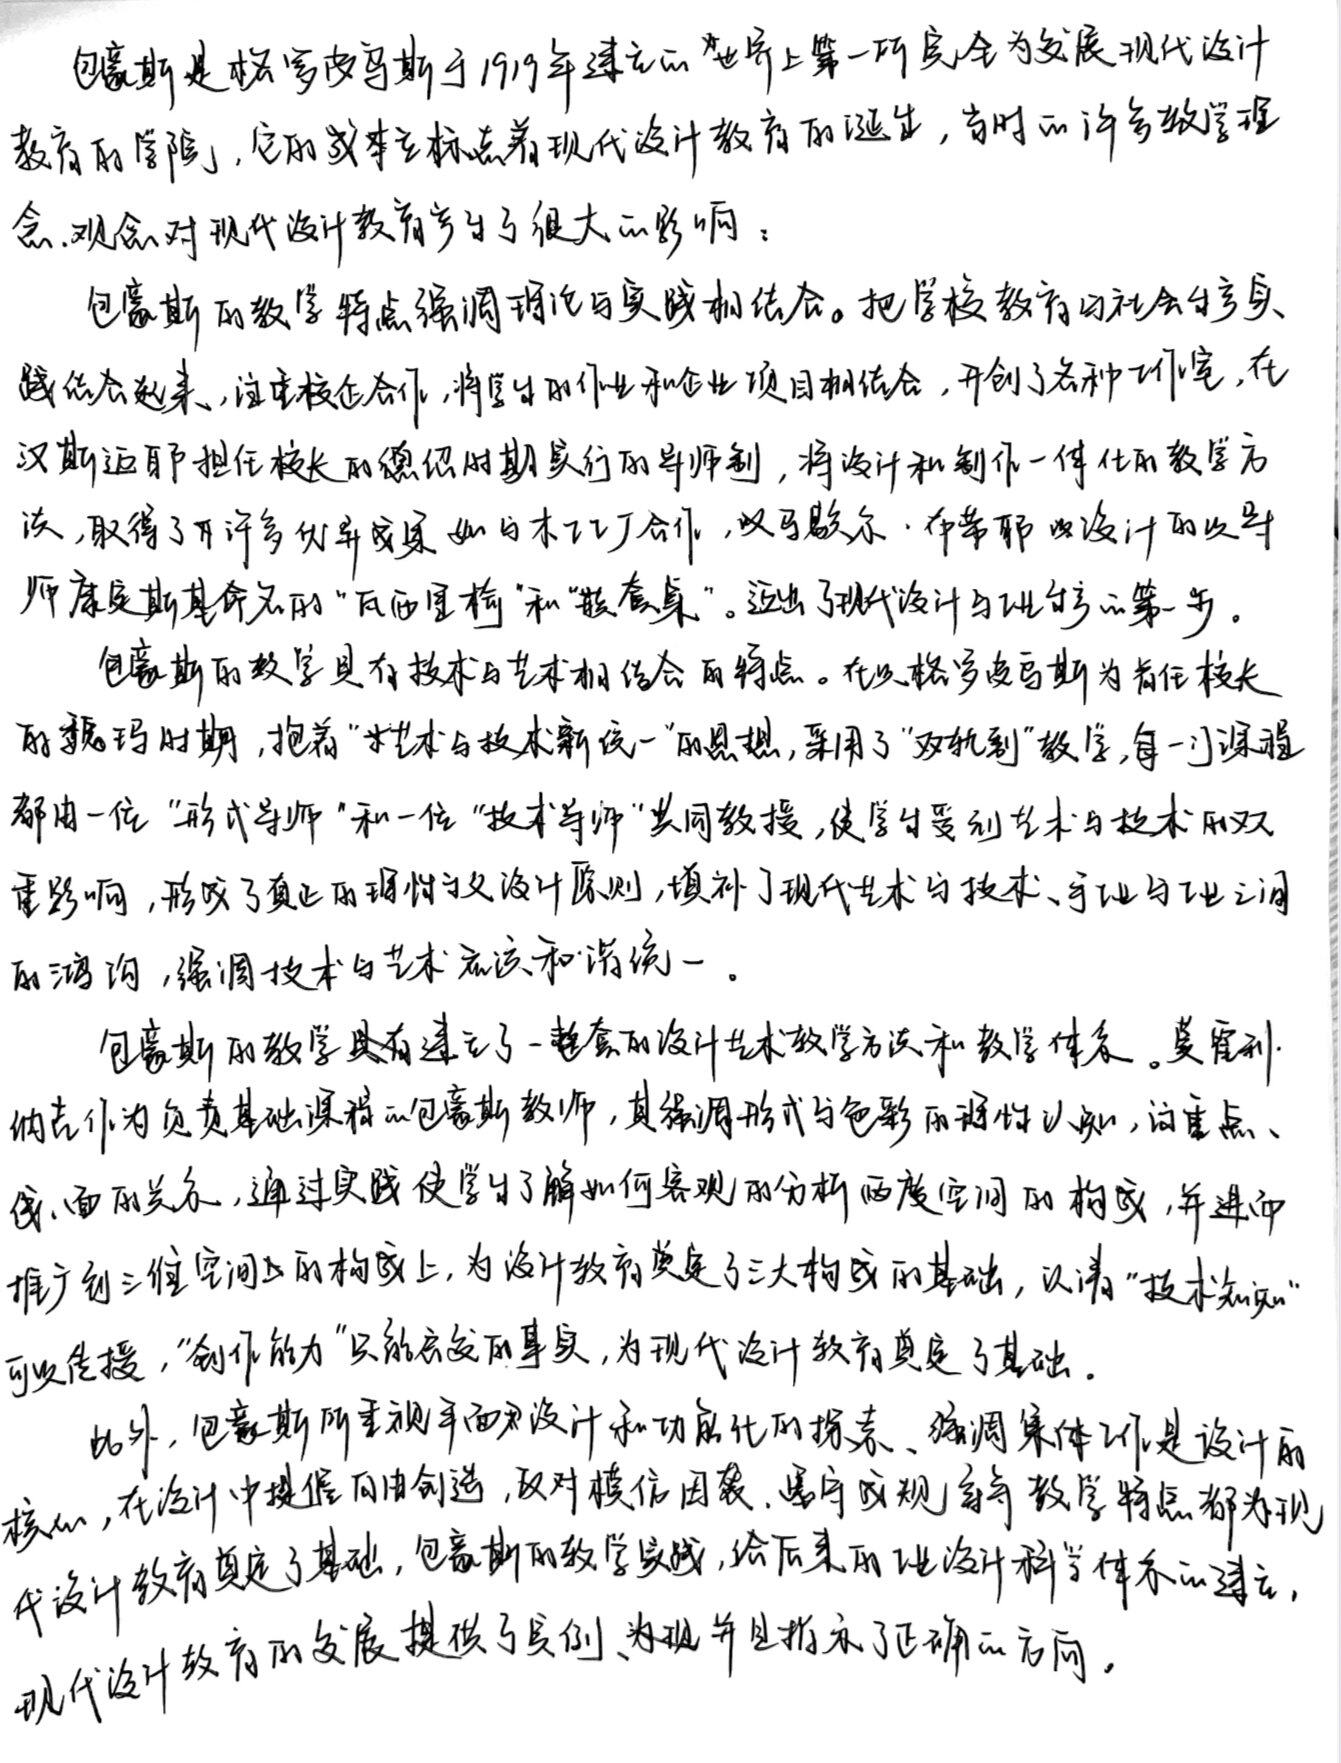 包豪斯是格罗皮乌斯于1919年建立的世界上第一所完全为发展现代设计
教育的学院,它的成立标志着现代设计教育的诞生,当时的许多教学理
念、观念对现代设计教育产生了很大的影响:
包豪斯的教学特点强调理论与实践相结合。把学校教育与社会生产实
践结合起来、注重校企合作,将学生的作业和企业项目相结合,开创了各种工作室,在
汉斯迈耶担任校长的德绍时期实行的导师制,将设计和制作一体化的教学方
法,取得了许多优异成果如与木工工厂合作,以马歇尔·布劳耶设计的以导
师康定斯基命名的“瓦西里椅”和“嵌套桌”。迈出了现代设计与工业生产的第一步。
包豪斯的教学具有技术与艺术相结合的特点。在以格罗皮乌斯为首任校长
的魏玛时期,抱着“艺术与技术新统一”的思想,采用了“双轨制”教学,每一门课程
都由一位“形式导师”和一位“技术导师”共同教授,使学生受到艺术与技术的双
重影响,形成了真正的理性主义设计原则,填补了现代艺术与技术、手工业与工业之间
的鸿沟,强调技术与艺术应该和谐统一。
包豪斯的教学具有建立了一整套的设计艺术教学方法和教学体系。莫霍利·
纳吉作为负责基础课程的包豪斯教师,其强调形式与色彩的理性认知,注重点、
线、面的关系,通过实践使学生了解如何客观的分析两度空间的构成,并进而
推广到三维空间的构成上,为设计教育奠定了三大构成的基础,认清“技术知识”
可以传授,“创作能力”只能启发的事实,为现代设计教育奠定了基础。
此外,包豪斯所重视平面设计和功能化的探索、强调集体工作是设计的
核心,在设计中提倡自由创造,反对模仿因袭、墨守成规等教学特点都为现
代设计教育奠定了基础,包豪斯的教学实践,给后来的工业设计科学体系的建立,
现代设计教育的发展提供了实例、并且指示了正确的方向。